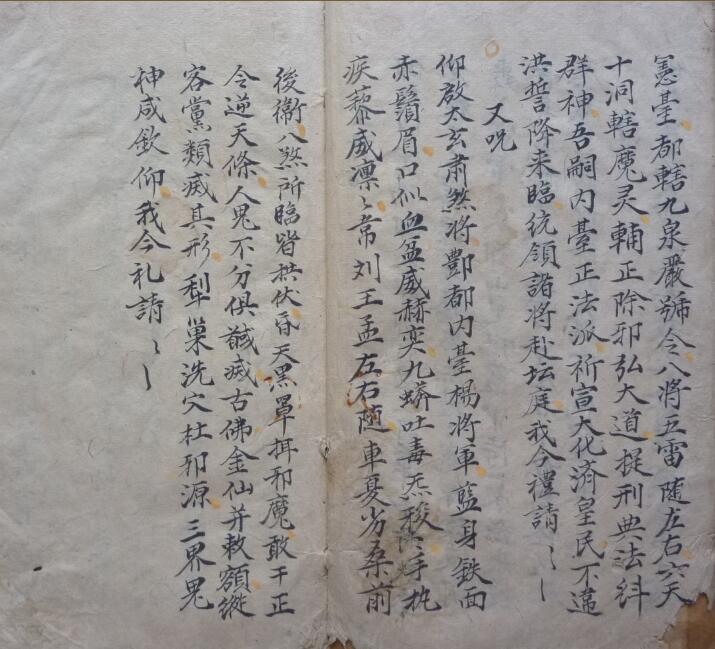 憲臺都轄九泉嚴號令八將五雷随左右六天
十洞轄魔灵輔正除邪弘大道提刑典法糾
群神吾嗣内臺正法派祈宣大化済皇民不違
洪誓降来臨统领諸将赴坛庭我今禮請〻〻
又咒
仰啟太玄肅煞将酆都内臺楊將軍藍身鉄面
赤鬚眉口似血盆威赫奕九蟒吐毒炁手执
疾藜威凛〻常刘王孟左右随車夏劣桑前
後衛八煞所臨皆拱伏昏天黑罩拜邪魔敢干正
令逆天條人鬼不分俱馘滅古佛金仙并敕額縱
容黨類滅其形犁巢洗穴杜邪源三界鬼
神咸欽仰我今礼請〻〻